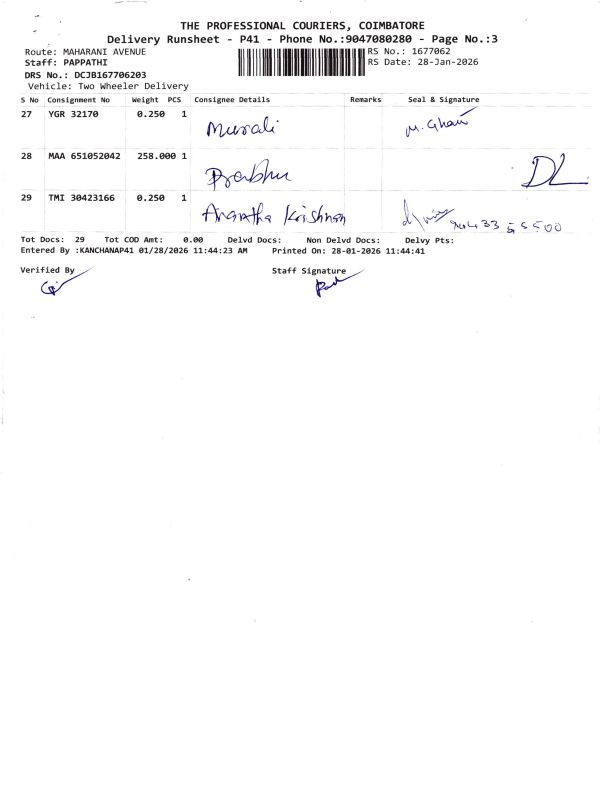 THE PROFESSIONAL COURIERS, COIMBATORE
Delivery Runsheet - P41 - Phone No.:9047080280 - Page No.:3
Route: MAHARANI AVENUE RS No.: 1677062
Staff: PAPPATHI RS Date: 28-Jan-2026
DRS No.: DCJB167706203
Vehicle: Two Wheeler Delivery
S No Consignment No Weight PCS Consignee Details Remarks Seal & Signature
27 YGR 32170 0.250 1 Murali
28 MAA 651052042 258.000 1 Prabhu DL
29 TMI 30423166 0.250 1 Anantha Krishnan
Tot Docs: 29 Tot COD Amt: 0.00 Delvd Docs: Non Delvd Docs: Delvy Pts:
Entered By :KANCHANAP41 01/28/2026 11:44:23 AM Printed On: 28-01-2026 11:44:41
Verified By Staff Signature